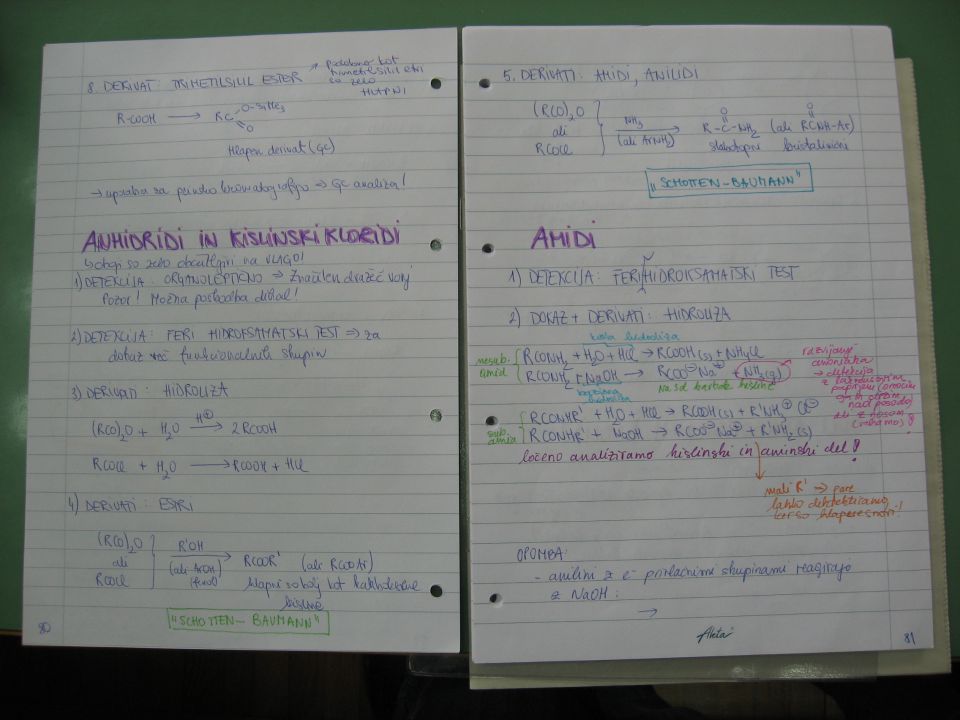 8. DERIVAT: TRIMETILSILIL ESTER → podobno kot
trimetilsilil etri
so zelo
HLAPNI
R-COOH → RC O-SiMe3
O
Hlapen derivat (GC)
→ uporaba za plinsko kromatografijo ⇒ GC analiza!
ANHIDRIDI IN KISLINSKI KLORIDI
↳ oboji so zelo občutljivi na VLAGO!
1) DETEKCIJA: ORGANOLEPTIČNO ⇒ Značilen dražeč vonj
Pozor! Možna poškodba dihal!
2) DETEKCIJA: FERI HIDROKSAMATSKI TEST ⇒ za
dokaz več funkcionalnih skupin
3) DERIVATI: HIDROLIZA
(RCO)2O + H2O H⊕→ 2RCOOH
RCOCl + H2O → RCOOH + HCl
4) DERIVATI: ESTRI
(RCO)2O
ali
RCOCl
R'OH
(ali ArOH)
(fenol)
→ RCOOR' (ali RCOOAr)
hlapni so bolj kot karboksilne
kisline
"SCHOTTEN-BAUMANN"
80
5. DERIVATI: AMIDI, ANILIDI
(RCO)2O
ali
RCOCl
NH3
(ali ArNH2)
→ R-C-NH2 (ali RCNH-Ar)
O O
slabotopni kristalinični
"SCHOTTEN-BAUMANN"
AMIDI
1) DETEKCIJA: FERI HIDROKSAMATSKI TEST
2) DOKAZ + DERIVATI: HIDROLIZA
kisla hidroliza
nesub.
amid
RCONH2 + H2O + HCl → RCOOH(s) + NH4Cl
RCONH2 + NaOH → RCOO⊖Na⊕ + NH3(g)
bazična
hidroliza
Na sol karboks. kisline
razvijanje
amoniaka
→ detekcija
z lakmusovim
papirjem (omočim
ga in držim
nad posodo)
ali z nosom
(vohamo)!
sub.
amid
RCONHR' + H2O + HCl → RCOOH(s) + R'NH3⊕ Cl⊖
RCONHR' + NaOH → RCOO⊖Na⊕ + R'NH2(s)
ločeno analiziramo kislinski in aminski del!
mali R' → pare
lahko detektiramo,
ker so
OPOMBA:
- anilini z e⁻ privlačnimi skupinami reagirajo
z NaOH:
→
81